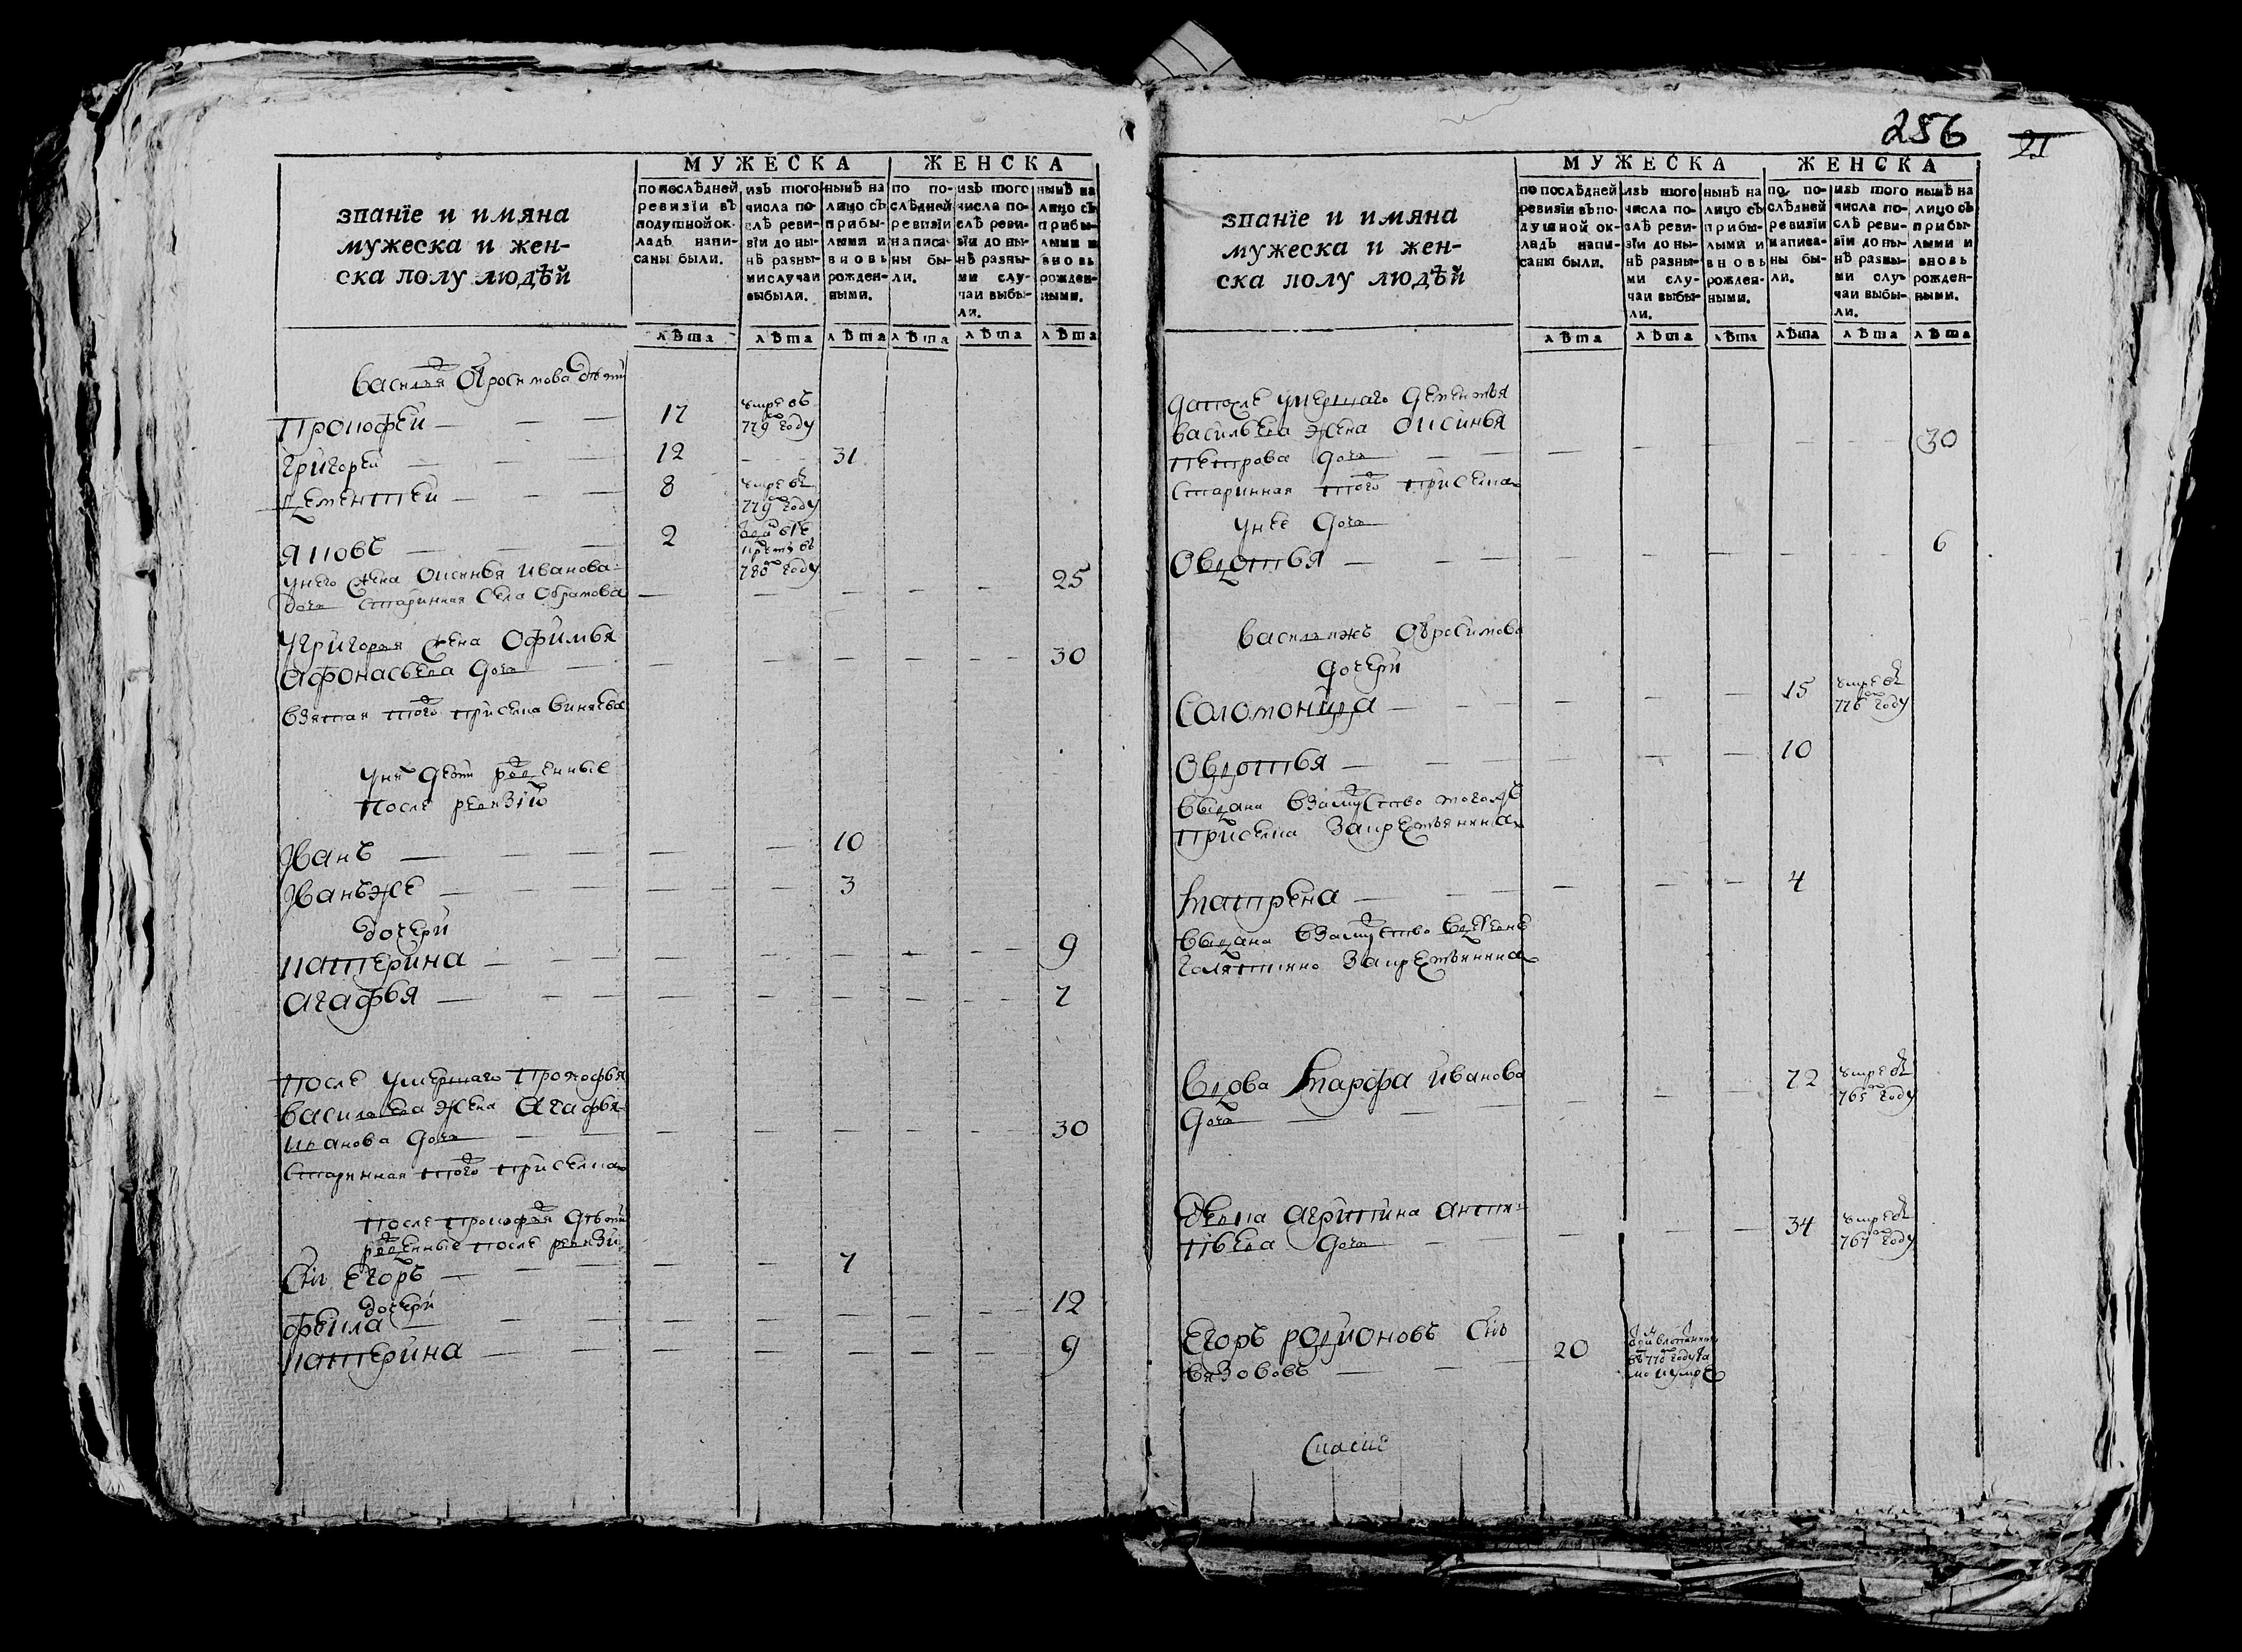 МУЖЕСКА
ЖЕНСКА
званїе и имяна
мужеска и жен-
ска полу людѣй
по послѣдней ревизїи въ подушной ок- ладъ напи- саны были.
изъ того числа по- слѣ реви- зїи до ны- нѣ разны- ми случаи выбыли.
нынѣ на лицо съ прибы- лыми и вновь рожден- ными.
по по- слѣдней ревизїи написа- ны бы- ли.
изъ того числа по- слѣ реви- зїи до ны- нѣ разны- ми слу- чаи выбы- ли.
нынѣ на лицо съ прибы- лыми и вновь рожден- ными.
лѣта лѣта лѣта лѣта лѣта лѣта
Василья Обросимова дѣти
Прокофей 17 умре въ 779 году
Григорей 12 31
Дементей 8 умре въ 779 году
Яковъ 2 780 году
у него жена Оксинья Иванова
дочь старинная села 25
У Григорья жена Офимья
Афонасьева дочь 30
взятая того приселка
у них дети рожденные
после ревизiи
Iванъ 10
Iванъ же 3
дочери
Катерина 9
Агафья 7
после умершаго Прокофья
Васильева жена Агафья
Иванова дочь 30
старинная того приселка
после Прокофья дѣти
рожденные после ревизи
Сынъ Егоръ 7
дочери
Фекла 12
Катерина 9
256
21
МУЖЕСКА
ЖЕНСКА
званїе и имяна
мужеска и жен-
ска полу людѣй
по послѣдней ревизїи въ по- душной ок- ладъ напи- саны были.
изъ того числа по- слѣ реви- зїи до ны- нѣ разны- ми слу- чаи выбы- ли.
нынѣ на лицо съ прибы- лыми и вновь рожден- ными.
по по- слѣдней ревизїи написа- ны бы- ли.
изъ того числа по- слѣ реви- зїи до ны- нѣ разны- ми слу- чаи выбы- ли.
нынѣ на лицо съ прибы- лыми и вновь рожден- ными.
лѣта лѣта лѣта лѣта лѣта лѣта
да после умершаго Дементья
Васильева жена Оксинья
Петрова дочь 30
старинная того приселка
у нее дочь
Овдотья 6
Василья жъ Обросимова
дочери
Соломонида 15 умре въ 776 году
Овдотья 10
выдана взамужство того жъ
приселка за крестьянина
Матрена 4
выдана взамужство в деревне
за крестьянина
Вдова Марфа Иванова
дочь 72 умре въ 765 году
Девка Агрипина Анти-
пьева дочь 34 умре въ 767 году
Егоръ Родионовъ сынъ
Вязововъ 20 въ 770 году